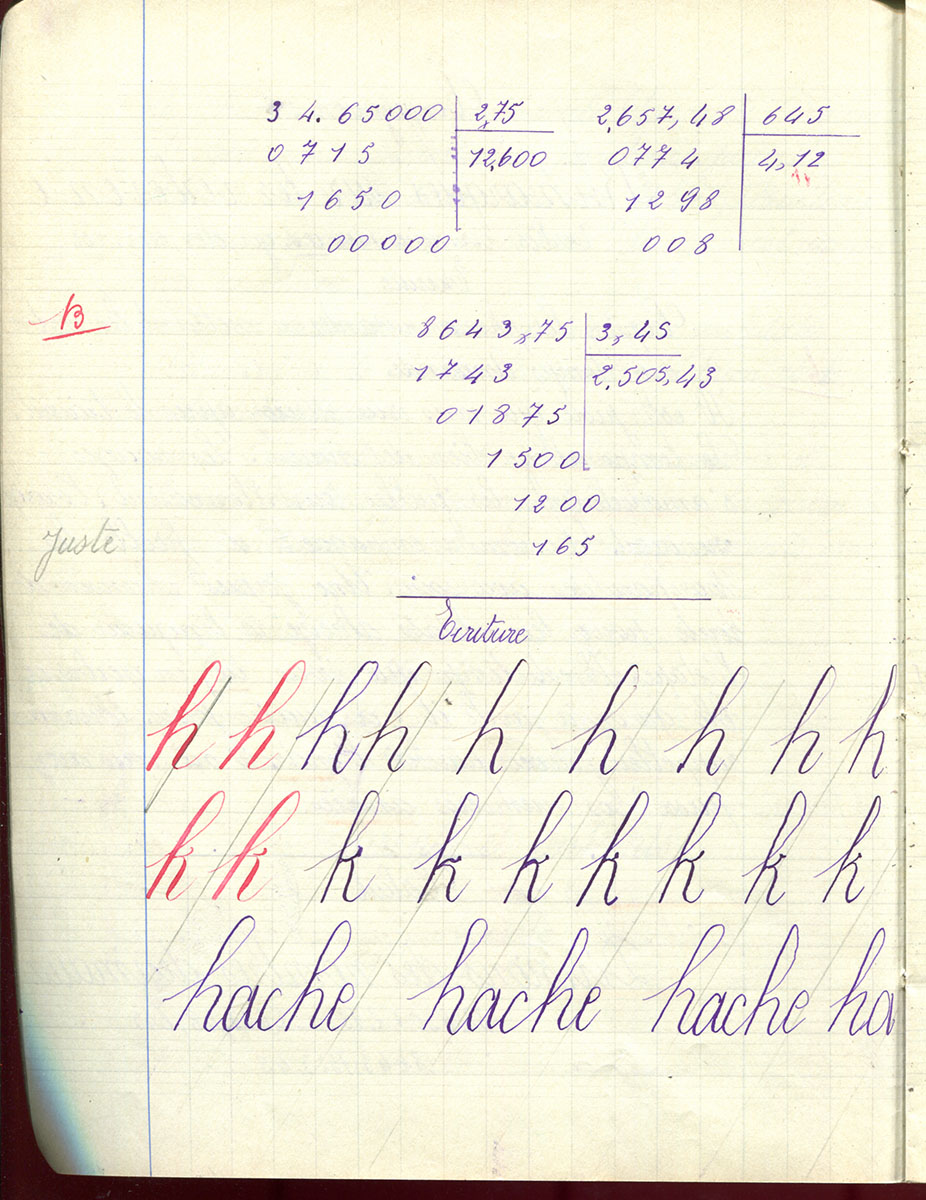 34.65000 2,75
0715 12,600
1650
00000
2,657,48 645
0774 4,12
1298
008
B
8643,75 3,45
1743 2.505,43
01875
1500
1200
165
Juste
Ecriture
h h h h h h h h h
k k k k k k k k k
hache hache hache ha